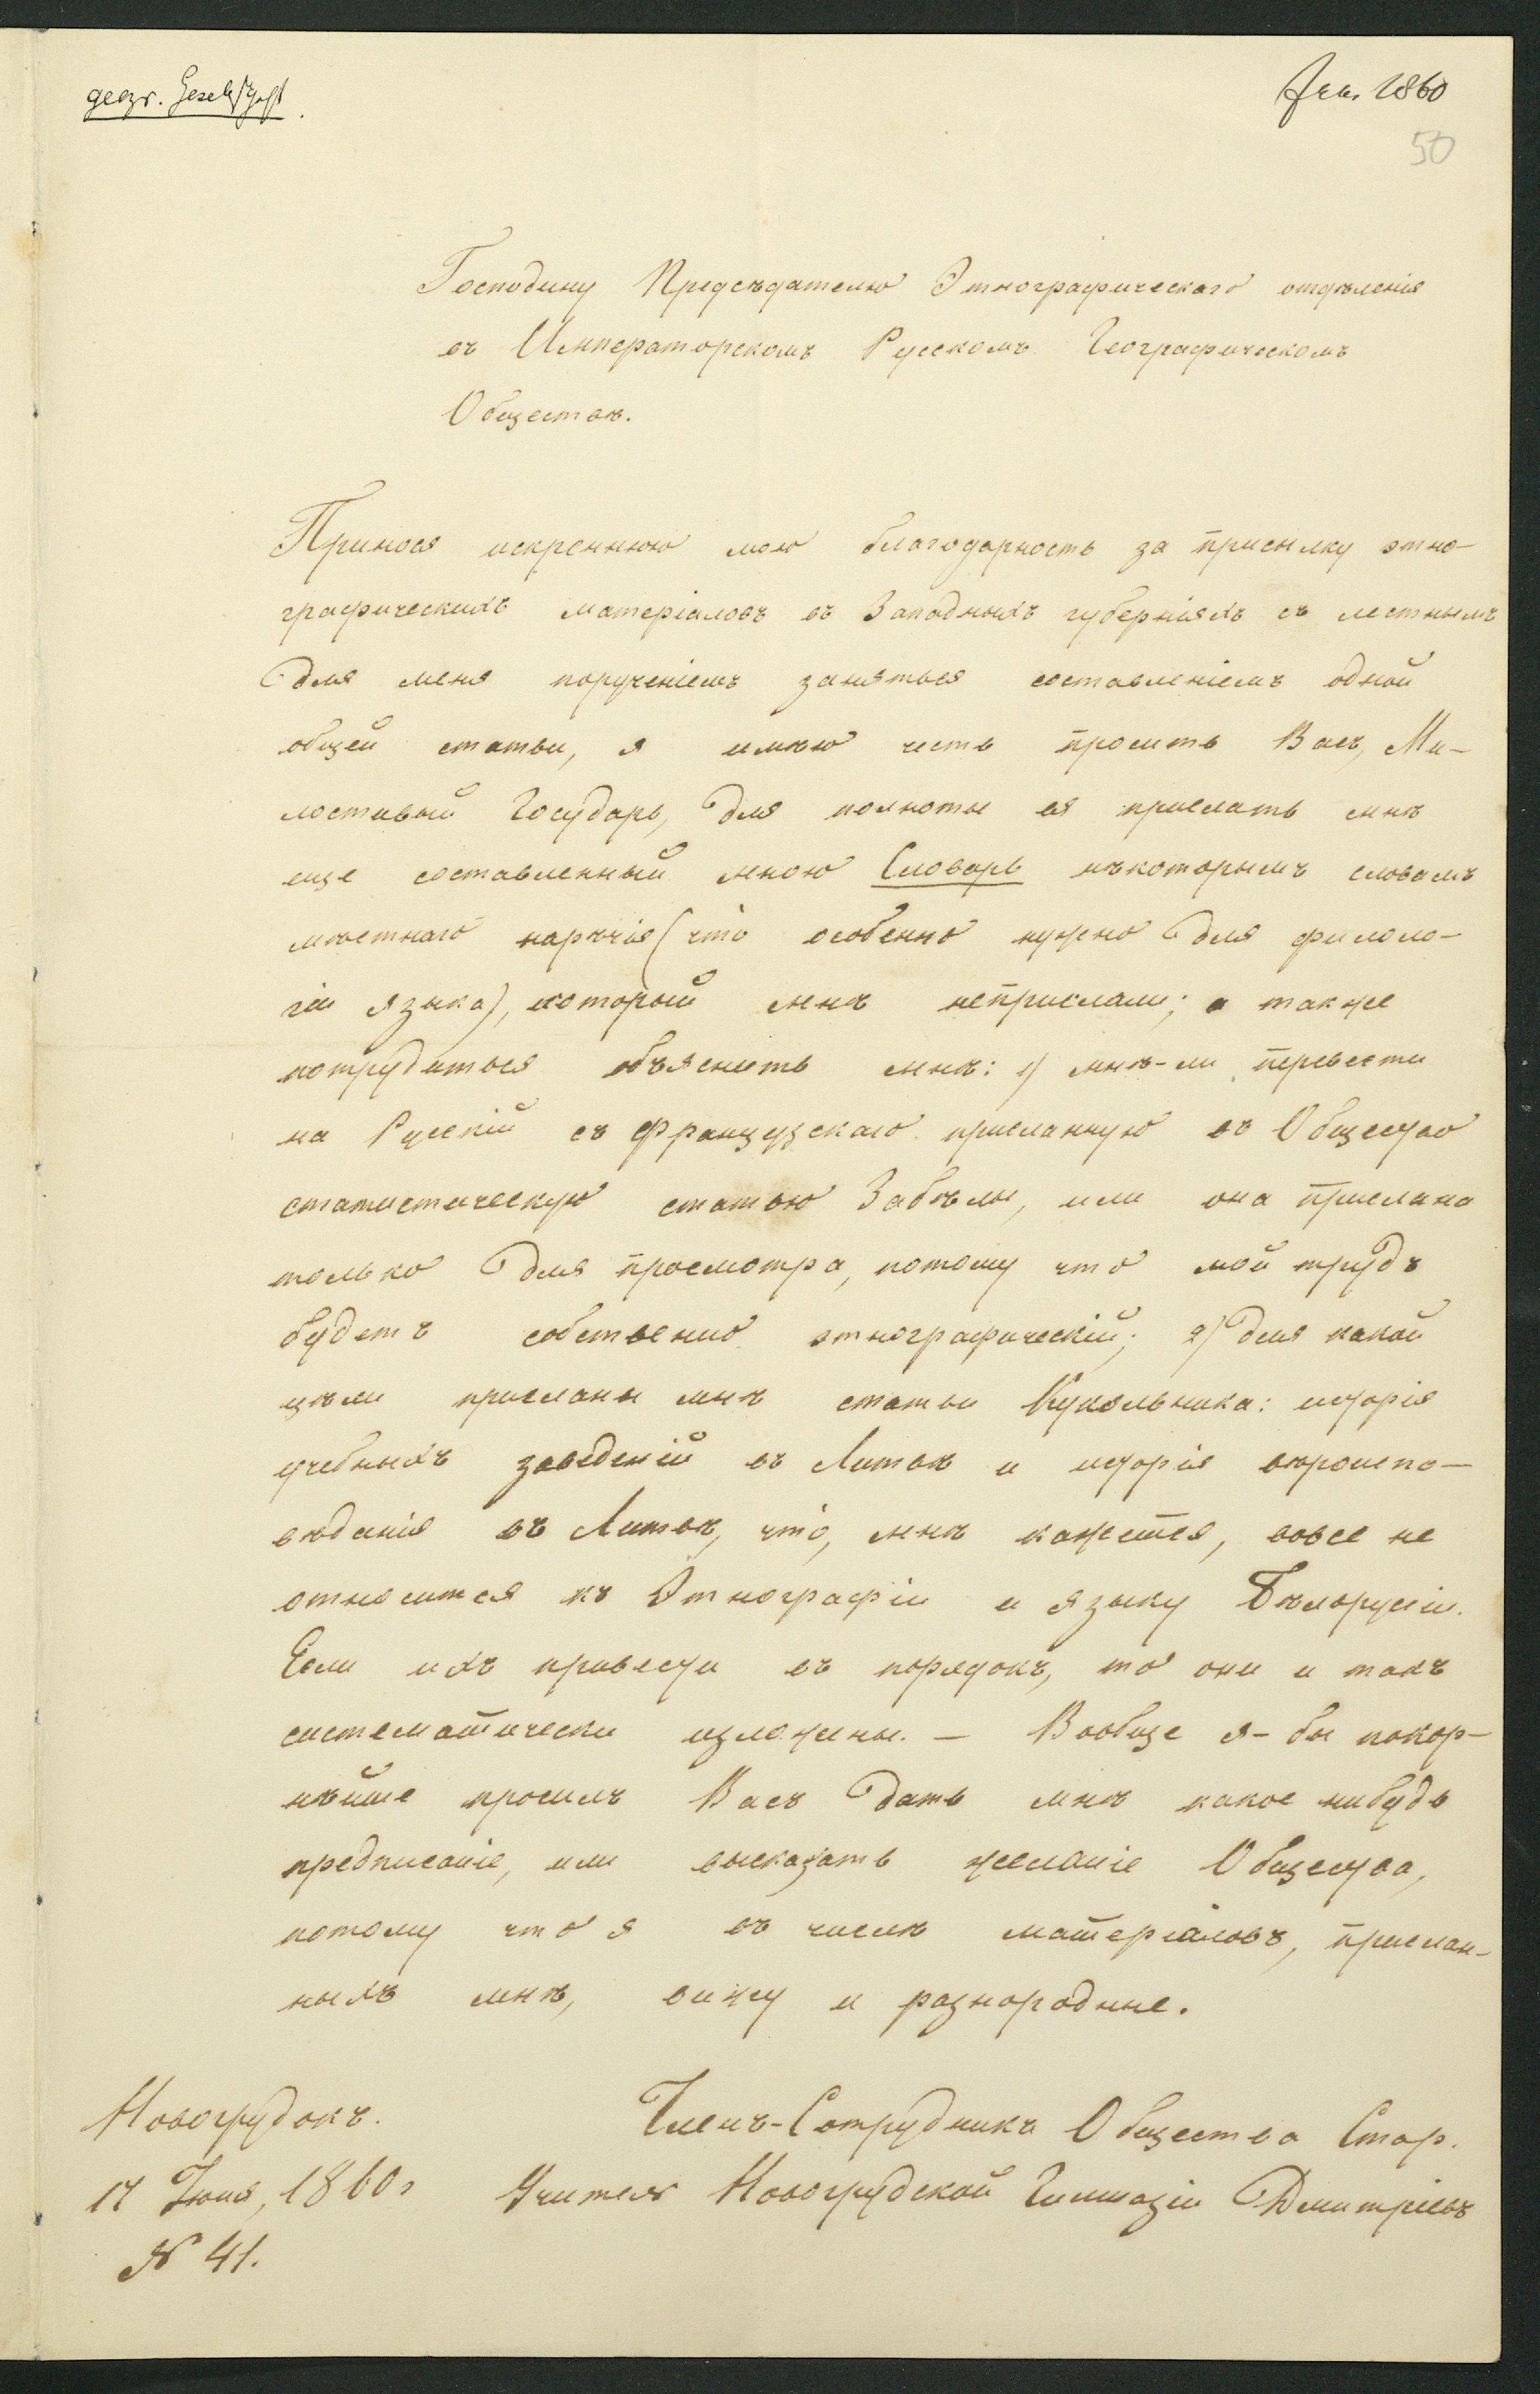 geogr. Gesellschaft.
1860
50
Господину Предсѣдателю Этнографическаго отдѣленія
въ Императорскомъ Русскомъ Географическомъ
Обществѣ.
Принося искреннюю мою благодарность за присылку этно-
графическихъ матеріаловъ въ Западныхъ губерніяхъ съ лестнымъ
для меня порученіемъ заняться составленіемъ одной
общей статьи, я имѣю честь просить Васъ, Ми-
лостивый Государь, для полноты ея прислать мнѣ
еще составленный мною Словарь нѣкоторымъ словамъ
мѣстнаго нарѣчія (что особенно нужно для филоло-
гіи языка), который мнѣ неприслали; а также
потрудиться объяснить мнѣ: 1) мнѣ-ли перевести
на Русскій съ Французскаго присланную въ Общество
статистическую статью Забѣлы, или она прислана
только для просмотра, потому что мой трудъ
будетъ собственно этнографическій; 2) для какой
цѣли присланы мнѣ статьи Кукольника: исторія
учебныхъ заведеній въ Литвѣ и исторія вѣроиспо-
вѣданія въ Литвѣ, что, мнѣ кажется, вовсе не
относится къ Этнографіи и языку Бѣлорусіи.
Если ихъ привести въ порядокъ, то они и такъ
систематически изложены. — Вообще я-бы покор-
нѣйше просилъ Васъ дать мнѣ какое нибудь
предписаніе, или высказать желаніе Общества,
потому что я въ числѣ матеріаловъ, прислан-
ныхъ мнѣ, вижу и разнородные.
Новогрудокъ.
Членъ-Сотрудникъ Общества Стар.
17 Іюня, 1860 г
Учитель Новогрудской Гимназіи Дмитріевъ
№ 41.